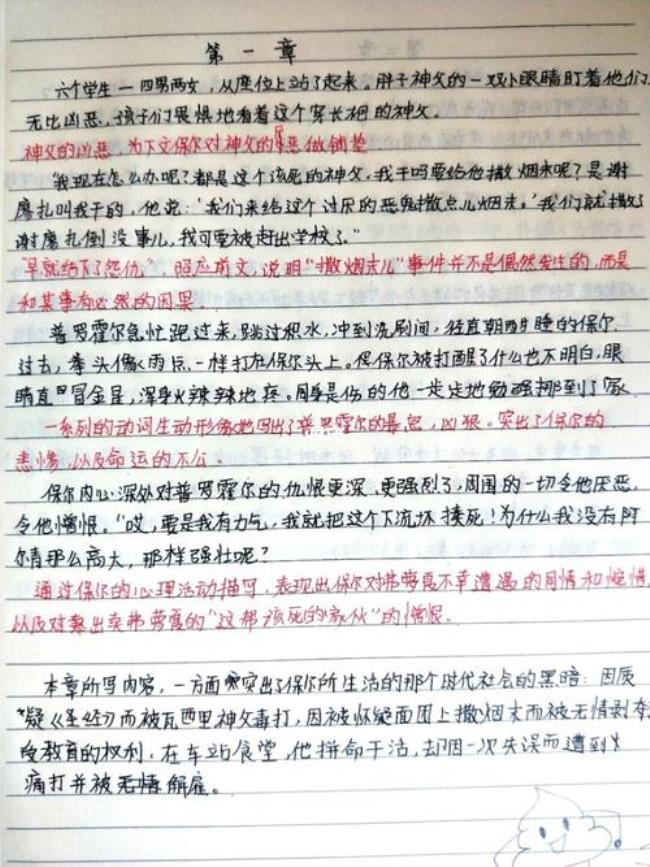 第一章
六个学生一四男两女，从座位上站了起来。胖子神父的一双小眼睛盯着他们，
无比凶恶，孩子们畏惧地看着这个穿长袍的神父。
神父的凶恶，为下文保尔对神父的恶做铺垫
"我现在怎么办呢？都是这个该死的神父。我干吗要给他撒烟末呢？是谢
廖扎叫我干的，他说：'我们来给这个讨厌的恶鬼撒点儿烟末。'我们就撒了
谢廖扎倒没事儿，我可要被赶出学校了。"
"早就结下了怨仇"，照应前文，说明"撒烟末儿"事件并不是偶然发生的，而是
和某事有必然的因果。
普罗霍尔急忙跑过来，踏过积水，冲到洗刷间，径直朝酣睡的保尔
过去，拳头像雨点一样打在保尔头上。但保尔被打醒了什么也不明白，眼
睛直冒金星，浑身火辣辣地疼。周身是伤的他一步一步地勉强挪到了家
一系列的动词生动形象地写出了普罗霍尔的暴怒，凶狠。突出了保尔的
悲惨以及命运的不公。
保尔内心深处对普罗霍尔的仇恨更深、更强烈了，周围的一切令他厌恶，
令他憎恨。"哎，要是我有力气，我就把这个下流坏揍死！为什么我没有阿
尔青那么高大，那样强壮呢？
通过保尔的心理活动描写，表现出保尔对弗萝霞不幸遭遇的同情和惋惜，
以及对卖出卖弗萝霞的"这帮该死的家伙"的憎恨。
本章所写内容，一方面突出了保尔所生活的那个时代社会的黑暗：因质
疑《圣经》而被瓦西里神父毒打，因被怀疑面团上撒烟末而被无情剥夺
受教育的权利。在车站食堂，他拼命干活，却因一次失误而遭到
痛打并被无情解雇。